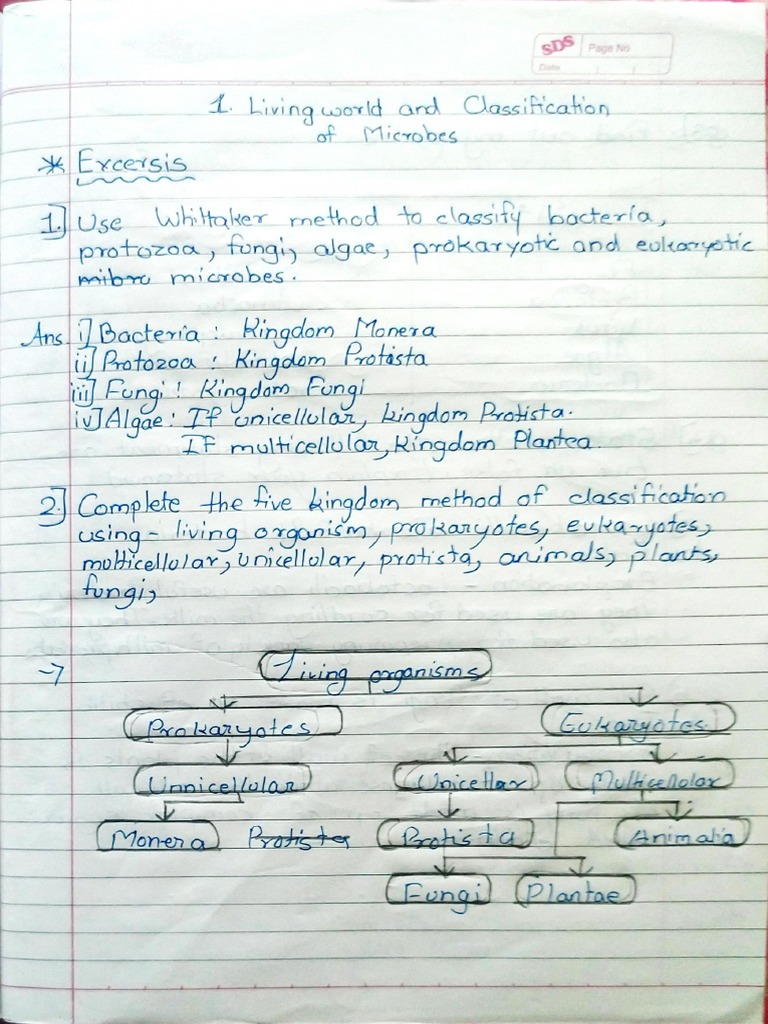 SDS Page No
Date
1. Living world and Classification
of Microbes
* Excersis
1] Use Whiltaker method to classify bacteria,
protozoa, fungi, algae, prokaryotic and eukaryotic
mibro microbes.
Ans. i] Bacteria : Kingdom Monera
ii] Protozoa : Kingdom Protista
iii] Fungi : Kingdom Fungi
iv] Algae : If unicellular, kingdom Protista.
If multicellular, Kingdom Plantea
2] Complete the five kingdom method of classification
using - living organism, prokaryotes, eukaryotes,
multicellular, unicellular, protista, animals, plants,
fungi,
→ Living organisms
Prokaryotes Eukaryotes
Unnicellular Unicellar Multicellolar
Monera Protista Protista Animalia
Fungi Plantae